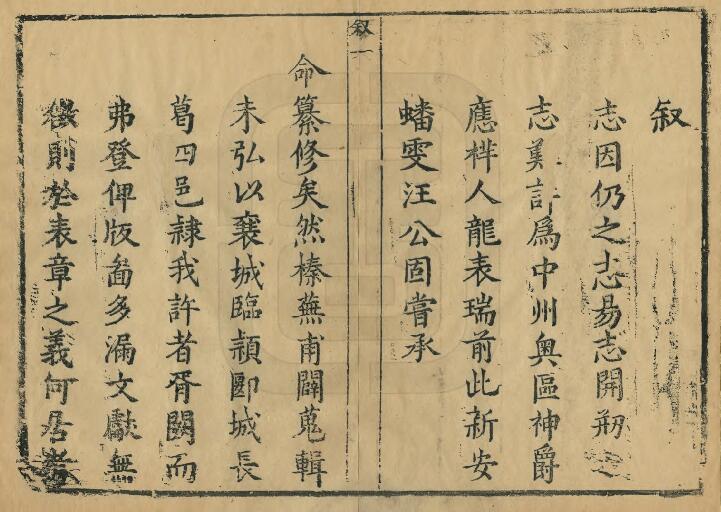 叙
志因仍之志易志開刱之
志難許爲中州奧區神爵
應祥人龍表瑞前此新安
蟠雯汪公固嘗承
叙一
命纂修矣然榛蕪甫闢蒐輯
未弘以襄城臨潁郾城長
葛四邑隷我許者胥闕而
弗登俾版啚多漏文獻無
徵則於表章之義何居